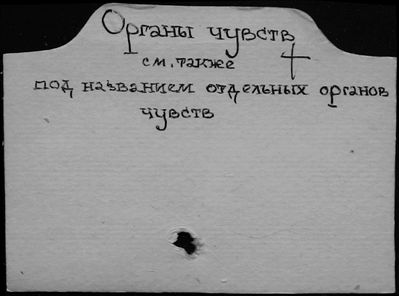 Органы чувств
см. также
под названием отдельных органов
чувств